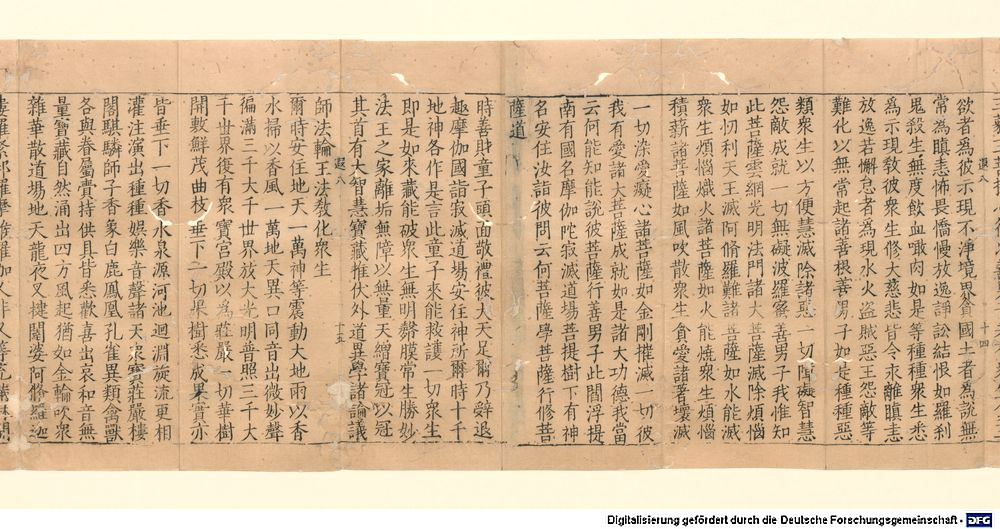 遐八
十四
欲者為彼示現不淨境界貪國土者為說無
常為瞋恚怖畏憍慢放逸諍訟結恨如羅刹
鬼殺生無度飲血噉肉如是等種種衆生悉
為示現教彼衆生修大慈悲皆令永離瞋恚
放逸若懈怠者為現水火盜賊惡王怨敵等
難化以無常起諸善根善男子如是種種惡
類衆生以方便慧滅除諸惡一切障礙智慧
怨敵成就一切無礙波羅蜜善男子我惟知
此菩薩雲網光明法門諸大菩薩滅除煩惱
如忉利天王滅阿脩羅難諸菩薩如水能滅
衆生煩惱熾火諸菩薩如火能燒衆生煩惱
積薪諸菩薩如風吹散衆生貪愛諸著壞滅
一切染愛癡心諸菩薩如金剛摧滅一切彼
我有愛諸大菩薩成就如是諸大功德我當
云何能知能說彼菩薩行善男子此閻浮提
南有國名摩伽陀寂滅道場菩提樹下有神
名安住汝詣彼問云何菩薩學菩薩行修菩
薩道
時善財童子頭面敬禮彼大天足乃辭退
趣摩伽國詣寂滅道場安住神所爾時十千
地神各作是言此童子來能救護一切衆生
即是如來藏能破衆生無明㲉膜常生勝妙
法王之家離垢無障以無量天繒寶冠以冠
其首有大智慧寶藏推伏外道異學諸論議
遐八
十五
師法輪王法教化衆生
爾時安住地天一萬神等震動大地雨以香
水掃以香風一萬地天異口同音出微妙聲
徧滿三千大千世界放大光明普照三千大
千世界復有衆寶宮殿以為莊嚴一切華樹
開敷鮮茂曲枝垂下一切果樹悉成果實亦
皆垂下一切香水泉源河池迴淵旋流更相
灌注演出種種娛樂音聲諸天衆寶莊嚴樓
閣騏驎師子香象白鹿鳳凰孔雀異類禽獸
各與眷屬賷持供具皆悉歡喜出哀和音無
量寶藏自然涌出四方風起猶如金輪吹衆
雜華散道場地天龍夜叉揵闥婆阿脩羅迦
Digitalisierung gefördert durch die Deutsche Forschungsgemeinschaft - DFG